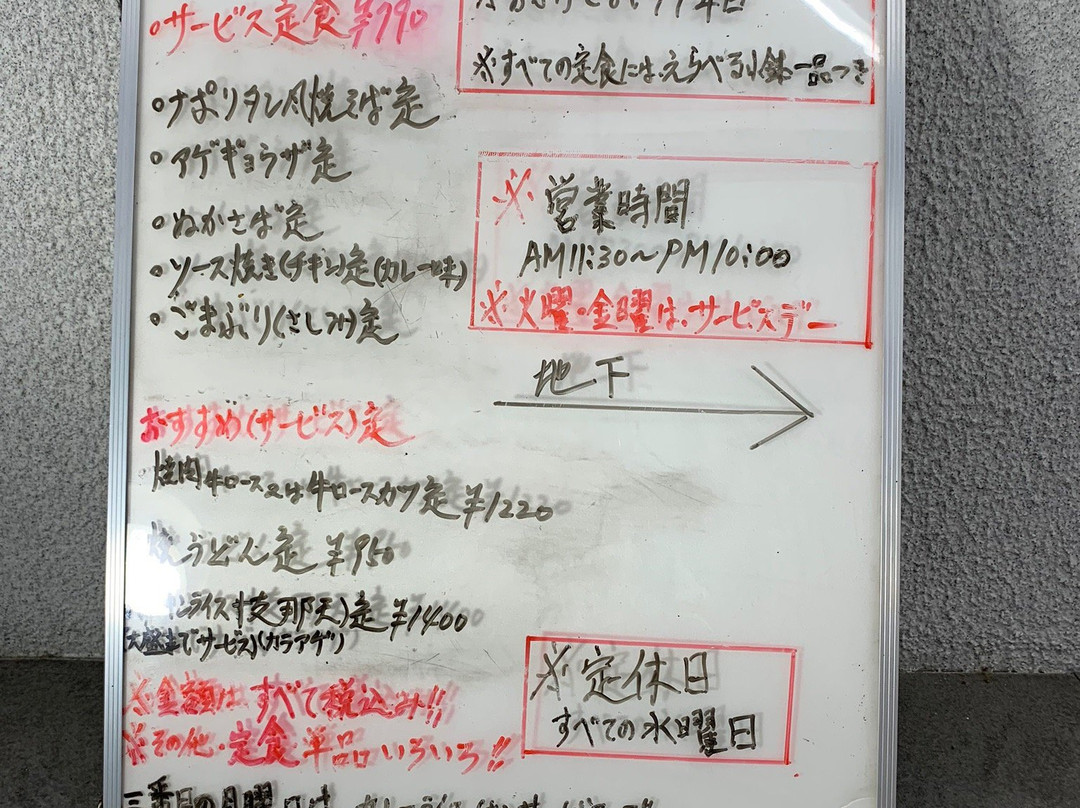 •サービス定食¥790
•ナポリタン風焼そば定
•アゲギョウザ定
•ぬかさば定
•ソース焼き(チキン)定(カレー味)
•ごまぶり(さしみ)定
おすすめ(サービス)定
焼肉牛ロース又は牛ロースカツ定¥1220
焼うどん定¥950
ライス(支那天)定¥1400
(大盛までサービス)(カラアゲ)
※金額はすべて税込み!!
※その他・定食単品いろいろ!!
三番目の月曜日は
※すべての定食には、えらべる小鉢一品つき
※営業時間
AM11:30~PM10:00
※火曜・金曜は、サービスデー
地下
※定休日
すべての水曜日